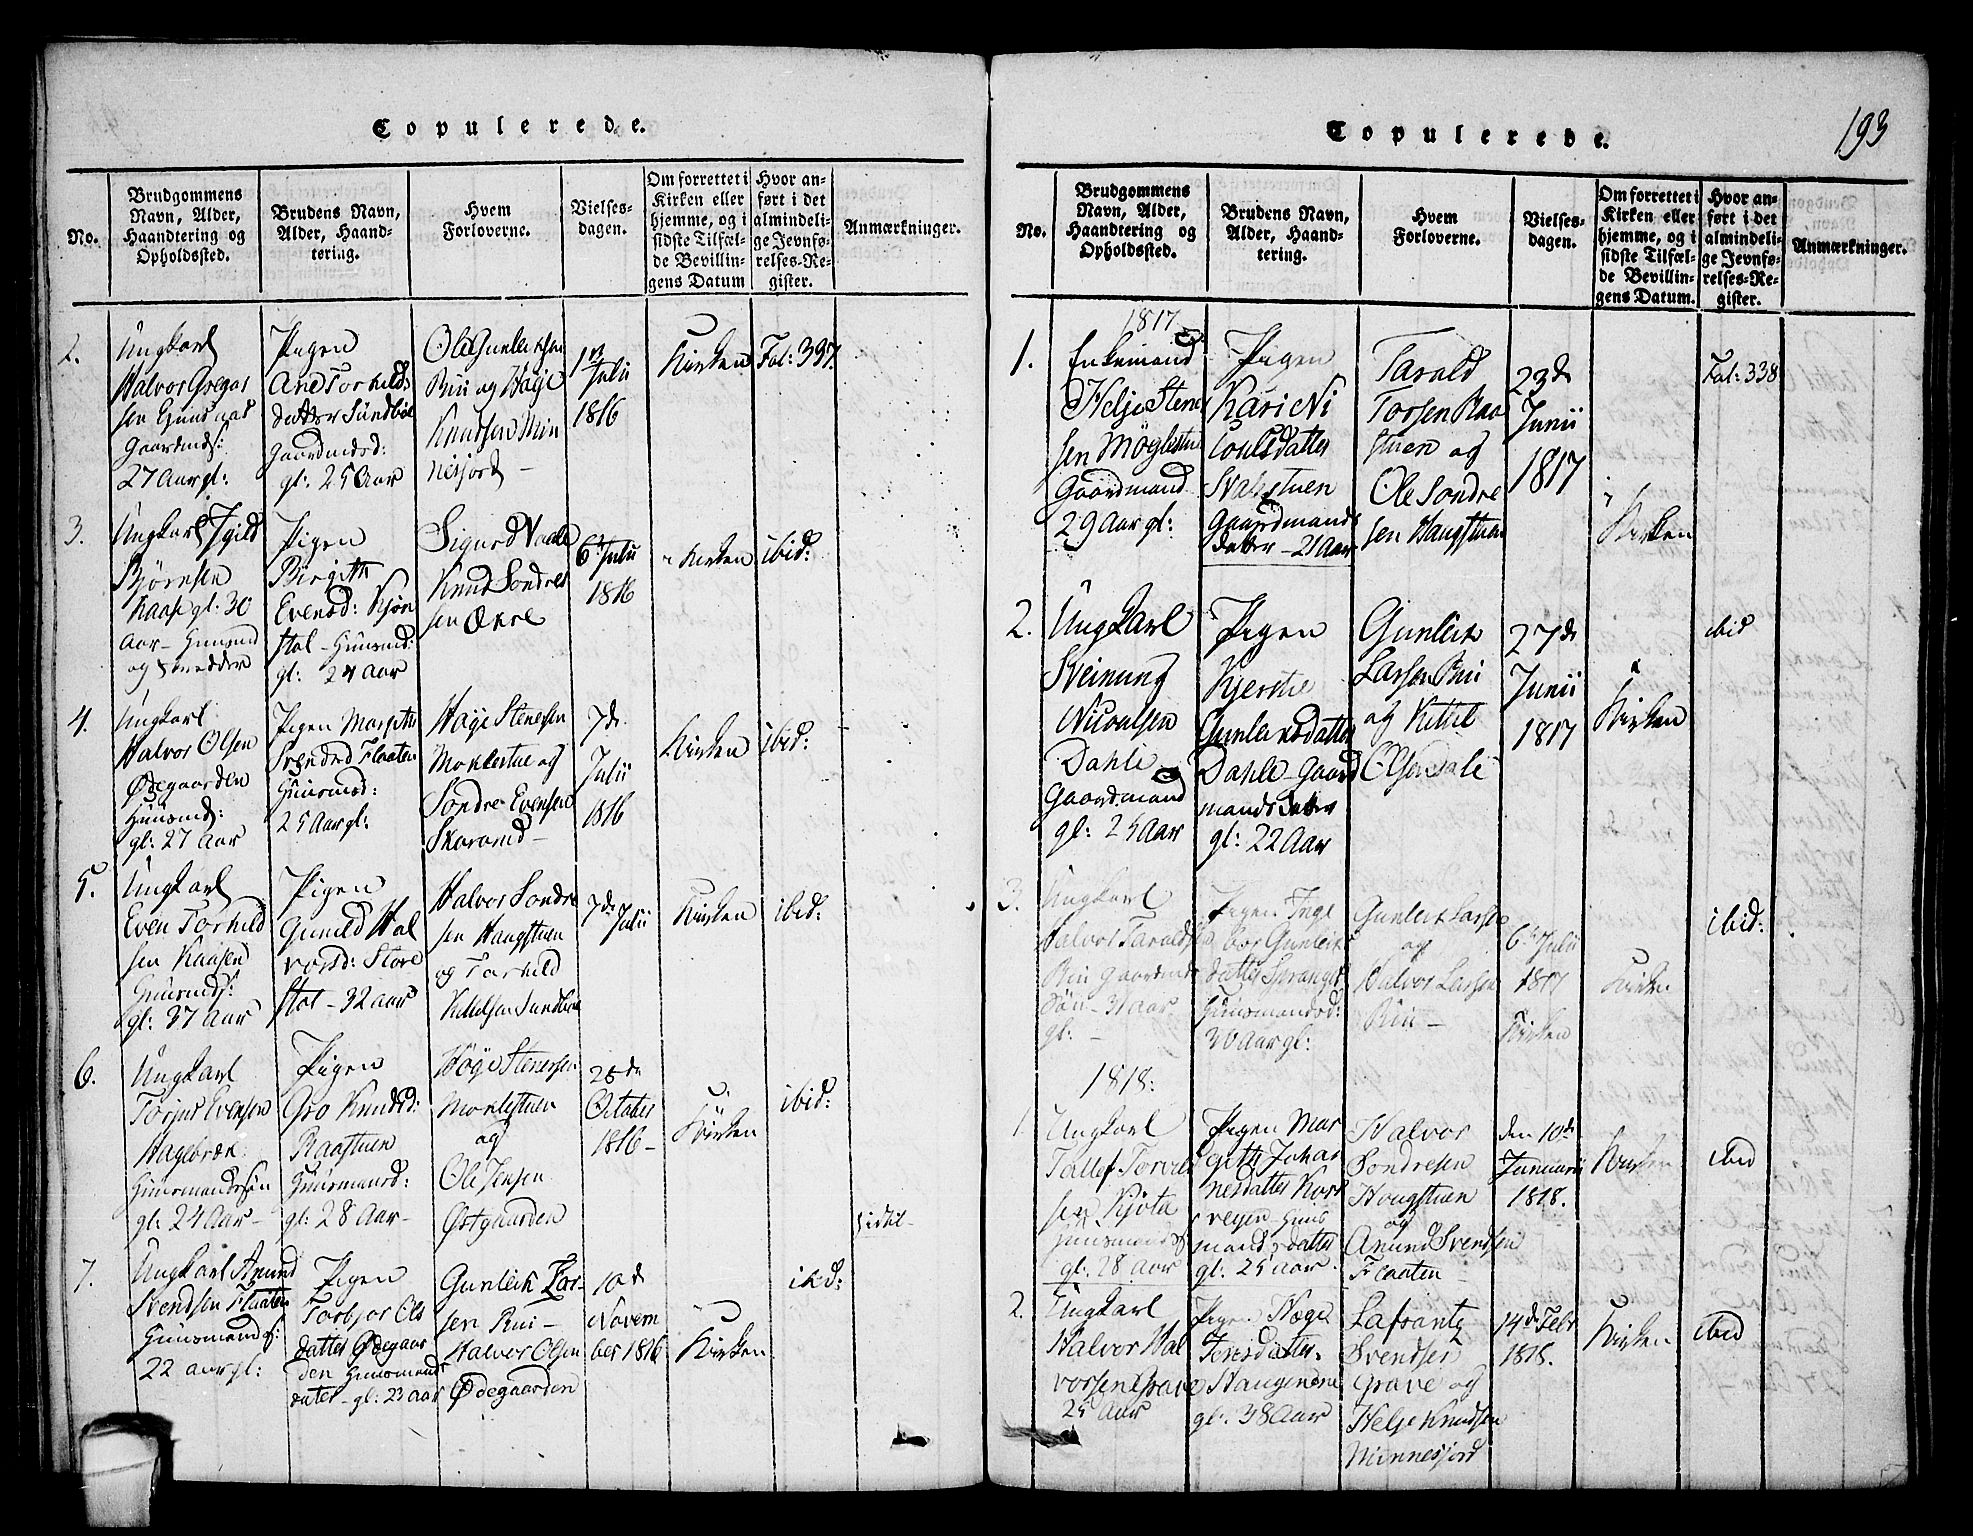 Copulerede.
No.
Brudgommens
Navn, Alder,
Haandtering og
Opholdssted.
Brudens Navn,
Alder, Haand-
tering.
Hvem
Forloverne.
Vielses-
dagen.
Om forrettet i
Kirken eller
hjemme, og i
sidste Tilfæl-
de Bevillin-
gens Datum
Hvor an-
ført i det
almindeli-
ge Jevnfø-
relses-Re-
gister.
Anmærkninger.
2.
Ungkarl
Halvor Gregar
sen
Gaardmds:
27 Aar gl:
Pigen
Ane Torkilds
datter Sundboe
Gaardmdsd:
gl: 25 Aar
Ole Gunleiksen
Bui og Høye
Knudsen Min
nesjord –
1ste
Julii
1816
Kirken
Fol: 337.
3.
Ungkarl
Bjørnsen
Kaase gl: 30
Aar – Huusmd
og Smedder
Pigen
Birgith
Evensd: Kjøn
stol – Huusmd:
gl: 24 Aar
Sigurd Vaale
Knud Sondres
sen Økre
6te Julii
1816
Kirken
ibid:
4.
Ungkarl
Halvor Olsen
Ødegaarden
Huusmds:
gl: 27 Aar
Pigen Margith
Svendsd Flaaten
Huusmd:
25 Aar gl:
Høye Stenesen
Moklestue og
Sondre Evensen
Skarand –
7de
Julii
1816
Kirken
ibid:
5.
Ungkarl
Even Torkild
sen Kaasen
Huusmds:
gl: 37 Aar
Pigen
Gunild Hal
vorsd: Store
stol – 32 Aar
Halvor Sondre
sen Haugstuen
og Torkild
Kittilsen Sundboe
7de Julii
Kirken
ibid:
6.
Ungkarl
Torjus Evensen
Hagebræk
Huusmandssøn
gl: 24 Aar –
Pigen
Gro Knudsd:
Raastuen
Huusmansd:
gl: 28 Aar –
Høye Stenesen
Moklestuen
og
Ole Jensen
Østgaarden
25de
Octobr
1816 –
Kirken
ibid:
7.
Ungkarl Amund
Svendsen Flaaten
Huusmands:
22 Aar gl:
Pigen
Torbjor Ols
datter Ødegaar
den Huusmands
dater – gl: 23 Aar
Gunleik Lar-
sen Bui –
Halvor Olsen
Ødegaarden
10de
Novem
ber 1816
Kirken
ibid:
Copulerede.
193
No.
Brudgommens
Navn, Alder,
Haandtering og
Opholdssted.
Brudens Navn,
Alder, Haand-
tering.
Hvem
Forloverne.
Vielses-
dagen.
Om forrettet i
Kirken eller
hjemme, og i
sidste Tilfæl-
de Bevillin-
gens Datum.
Hvor an-
ført i det
almindeli-
ge Jevnfø-
relses-Re-
gister.
Anmærkninger.
1817
1.
Enkemand
Helje Stene
sen Møglestue
Gaardmand
29 Aar gl:
Pigen
Kari Ni
coulsdatter
Gaardmands
dater – 21 Aar
Tarald
Torsen Raa
stuen og
Ole Sondre
sen Haugstuen
23de
Junii
1817
i
Kirken
Fol: 338
2.
Ungkarl
Steinung
Nicoulsen
Dahle
Gaardmand
gl: 25 Aar
Pigen
Kjerstie
Gunleiksdatter
Dahle – Gaard
mands dater
gl: 22 Aar
Gunleik
Larsen Bui
og Kittil
Olsen Dale
27de
Junii
1817
Kirken
ibid
3.
Ungkarl
Halvor Taraldsen
Bui Gaardmands
søn – 31 Aar
gl: –
Pigen Inge
bor Gunleiks
datter
Huusmandsd:
30 Aar gl:
Gunleik Larsen
og
Halvor Larsen
Bui –
6te Julii
1817
Kirken
Kirken
ibid:
1818:
1.
Ungkarl
Tallef Torvils
sen Kjøta
Huusmands
gl: 28 Aar
Pigen Mar
gith Johan
nesdatter Kors
vejen – Huus
mandsdatter
gl: 25 Aar.
Halvor
Sondresen
Hougstuen
og
Amund Svendsen
Flaaten –
den 10de
Januarii
1818.
Kirken
ibid
2.
Ungkarl
Halvor Hal
vorsen Grave
25 Aar
Pigen Hæge
Jensdatter
Haugenene
gl: 38 Aar
Lafrantz
Svendsen
Grave og
Helje Knudsen
Minnesjord
14de Febr
1818.
Kirken
ibid